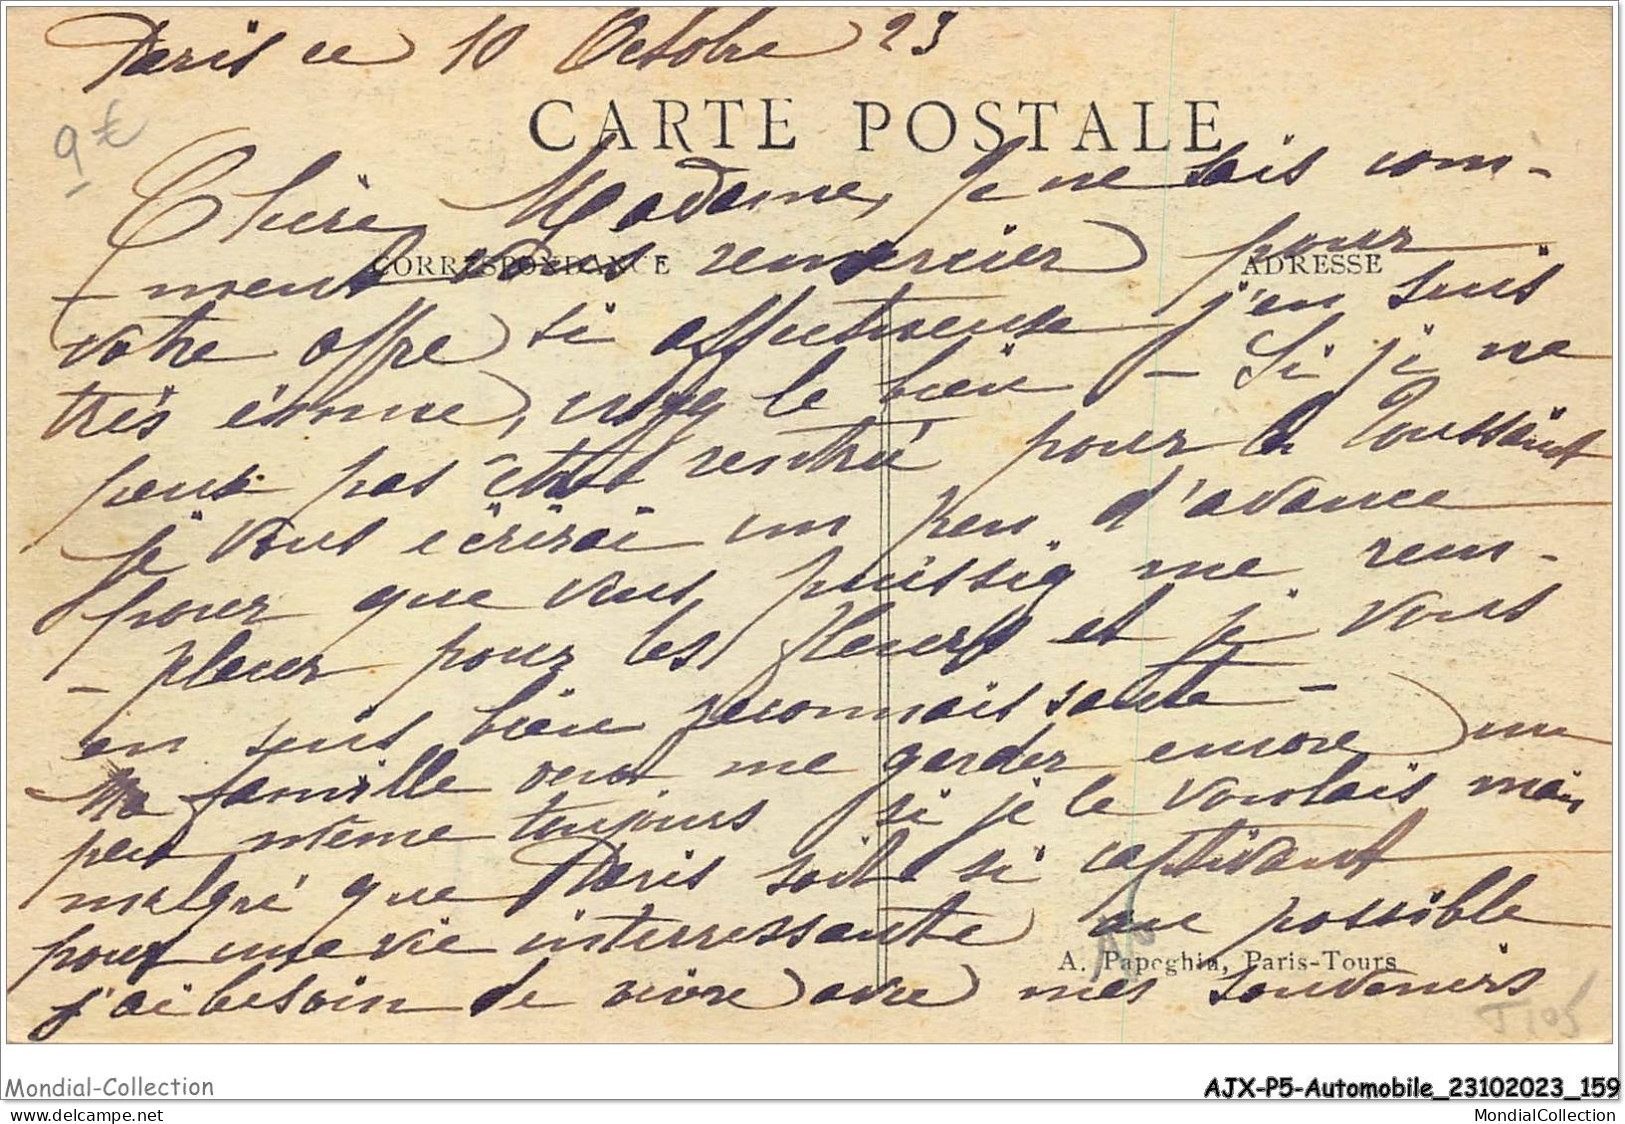 Paris ce 10 Octobre 23
9 €
CARTE POSTALE
Chère Madame, Je ne sais com-
CORRESPONDANCE
ADRESSE
-ment vous remercier pour
votre offre si affectueuse j'en suis
très émue, croyez le bien - Si je ne
peux pas être rentrée pour la Toussaint
je vous écrirai un peu d'avance
pour que vous puissiez me rem-
-placer pour les fleurs et je vous
en suis bien reconnaissante -
Ma famille veut me garder encore un
peu même toujours si je le voulais mais
malgré que Paris soit si captivant
pour une vie interressante au possible
A. Papeghin, Paris-Tours
j'ai besoin de vivre avec mes souvenirs
J105
Mondial-Collection
on delcampe.net
AJX-P5-Automobile_23102023_159
MondialCollection